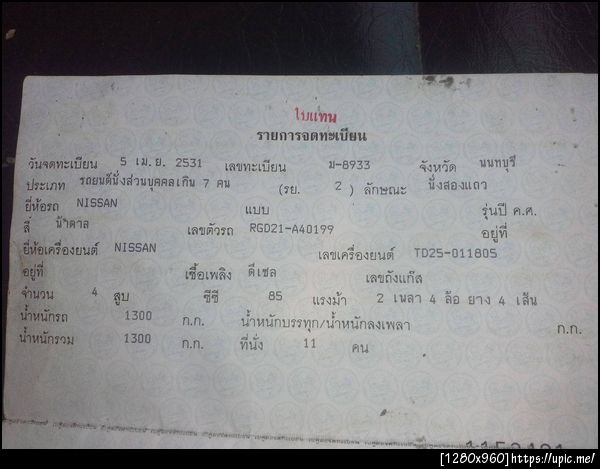 ใบแทน
รายการจดทะเบียน
วันจดทะเบียน 5 เม.ย. 2531 เลขทะเบียน ม-8933 จังหวัด นนทบุรี
ประเภท รถยนต์นั่งส่วนบุคคลเกิน 7 คน (รย. 2 ) ลักษณะ นั่งสองแถว
ยี่ห้อรถ NISSAN แบบ รุ่นปี ค.ศ.
สี น้ำตาล เลขตัวรถ RGD21-A40199 อยู่ที่
ยี่ห้อเครื่องยนต์ NISSAN เลขเครื่องยนต์ TD25-011805
อยู่ที่ เชื้อเพลิง ดีเซล เลขถังแก๊ส
จำนวน 4 สูบ ซีซี 85 แรงม้า 2 เพลา 4 ล้อ ยาง 4 เส้น
น้ำหนักรถ 1300 ก.ก. น้ำหนักบรรทุก/น้ำหนักลงเพลา ก.ก.
น้ำหนักรวม 1300 ก.ก. ที่นั่ง 11 คน
[1280x960]https://upic.me/